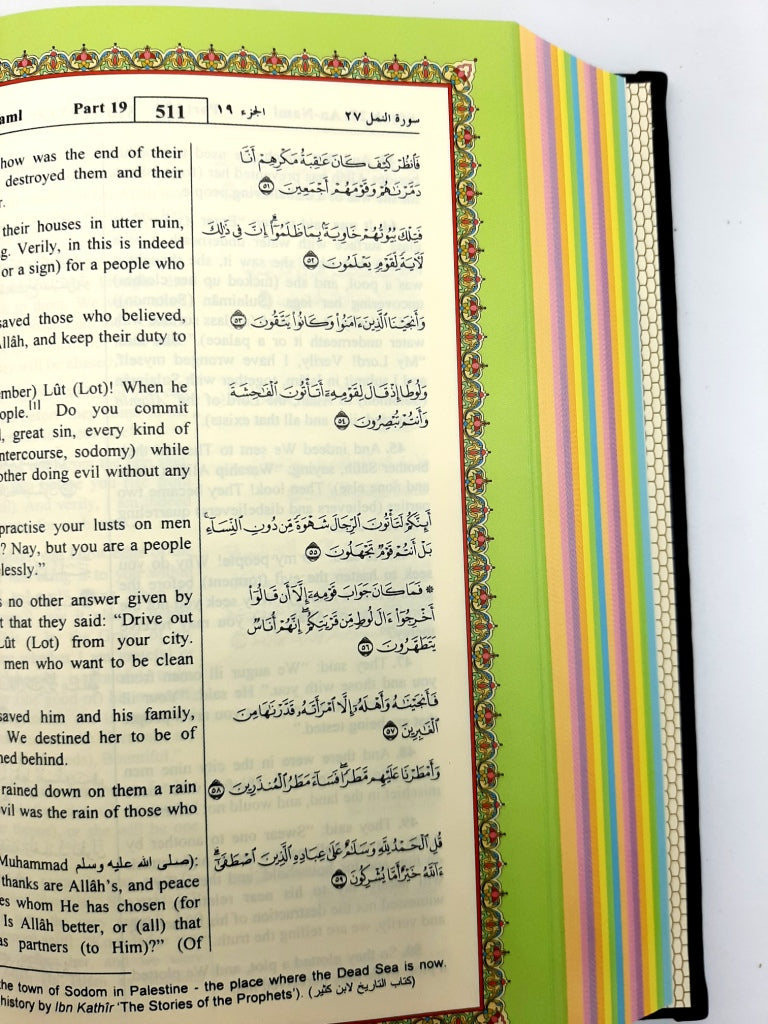 aml Part 19 511 الجزء ١٩ سورة النمل ٢٧
how was the end of their
destroyed them and their
r.
their houses in utter ruin,
g. Verily, in this is indeed
or a sign) for a people who
saved those who believed,
Allâh, and keep their duty to
ember) Lût (Lot)! When he
ople.[1] Do you commit
l, great sin, every kind of
ntercourse, sodomy) while
other doing evil without any
practise your lusts on men
? Nay, but you are a people
lessly.”
s no other answer given by
t that they said: “Drive out
Lût (Lot) from your city.
men who want to be clean
saved him and his family,
We destined her to be of
ned behind.
rained down on them a rain
vil was the rain of those who
Muhammad صلى الله عليه وسلم):
thanks are Allâh’s, and peace
es whom He has chosen (for
Is Allâh better, or (all) that
as partners (to Him)?” (Of
فَٱنظُرْ كَيْفَ كَانَ عَٰقِبَةُ مَكْرِهِمْ أَنَّا
دَمَّرْنَٰهُمْ وَقَوْمَهُمْ أَجْمَعِينَ ٥١
فَتِلْكَ بُيُوتُهُمْ خَاوِيَةًۢ بِمَا ظَلَمُوٓا۟ ۗ إِنَّ فِى ذَٰلِكَ
لَءَايَةً لِّقَوْمٍ يَعْلَمُونَ ٥٢
وَأَنجَيْنَا ٱلَّذِينَ ءَامَنُوا۟ وَكَانُوا۟ يَتَّقُونَ ٥٣
وَلُوطًا إِذْ قَالَ لِقَوْمِهِۦٓ أَتَأْتُونَ ٱلْفَٰحِشَةَ
وَأَنتُمْ تُبْصِرُونَ ٥٤
أَئِنَّكُمْ لَتَأْتُونَ ٱلرِّجَالَ شَهْوَةً مِّن دُونِ ٱلنِّسَآءِ ۚ
بَلْ أَنتُمْ قَوْمٌ تَجْهَلُونَ ٥٥
۞ فَمَا كَانَ جَوَابَ قَوْمِهِۦٓ إِلَّآ أَن قَالُوٓا۟
أَخْرِجُوٓا۟ ءَالَ لُوطٍ مِّن قَرْيَتِكُمْ ۖ إِنَّهُمْ أُنَاسٌ
يَتَطَهَّرُونَ ٥٦
فَأَنجَيْنَٰهُ وَأَهْلَهُۥٓ إِلَّا ٱمْرَأَتَهُۥ قَدَّرْنَٰهَا مِنَ
ٱلْغَٰبِرِينَ ٥٧
وَأَمْطَرْنَا عَلَيْهِم مَّطَرًا ۖ فَسَآءَ مَطَرُ ٱلْمُنذَرِينَ ٥٨
قُلِ ٱلْحَمْدُ لِلَّهِ وَسَلَٰمٌ عَلَىٰ عِبَادِهِ ٱلَّذِينَ ٱصْطَفَىٰٓ ۗ
ءَآللَّهُ خَيْرٌ أَمَّا يُشْرِكُونَ ٥٩
the town of Sodom in Palestine - the place where the Dead Sea is now.
history by Ibn Kathîr ‘The Stories of the Prophets’). (كتاب التاريخ لابن كثير)